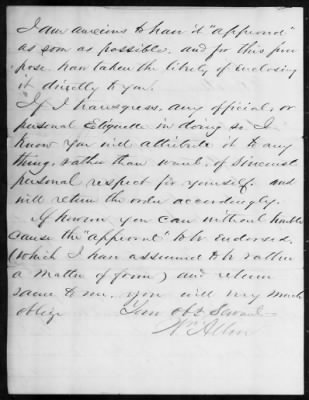 I am anxious to have it "approved"
as soon as possible, and for this pur
pose, have taken the liberty of enclosing
it directly to you.
If I transgress, any official, or
personal Etiquette in doing so I
know you will attribute it to any
thing, rather than want, of sincerest
personal respect for yourself. and
will return the order accordingly.
If however you can without trouble
cause the "approval" to be endorsed,
(which I have assumed to be rather
a matter of form) and return
same to me, you will very much
oblige Your obt Servant
Wm Allen